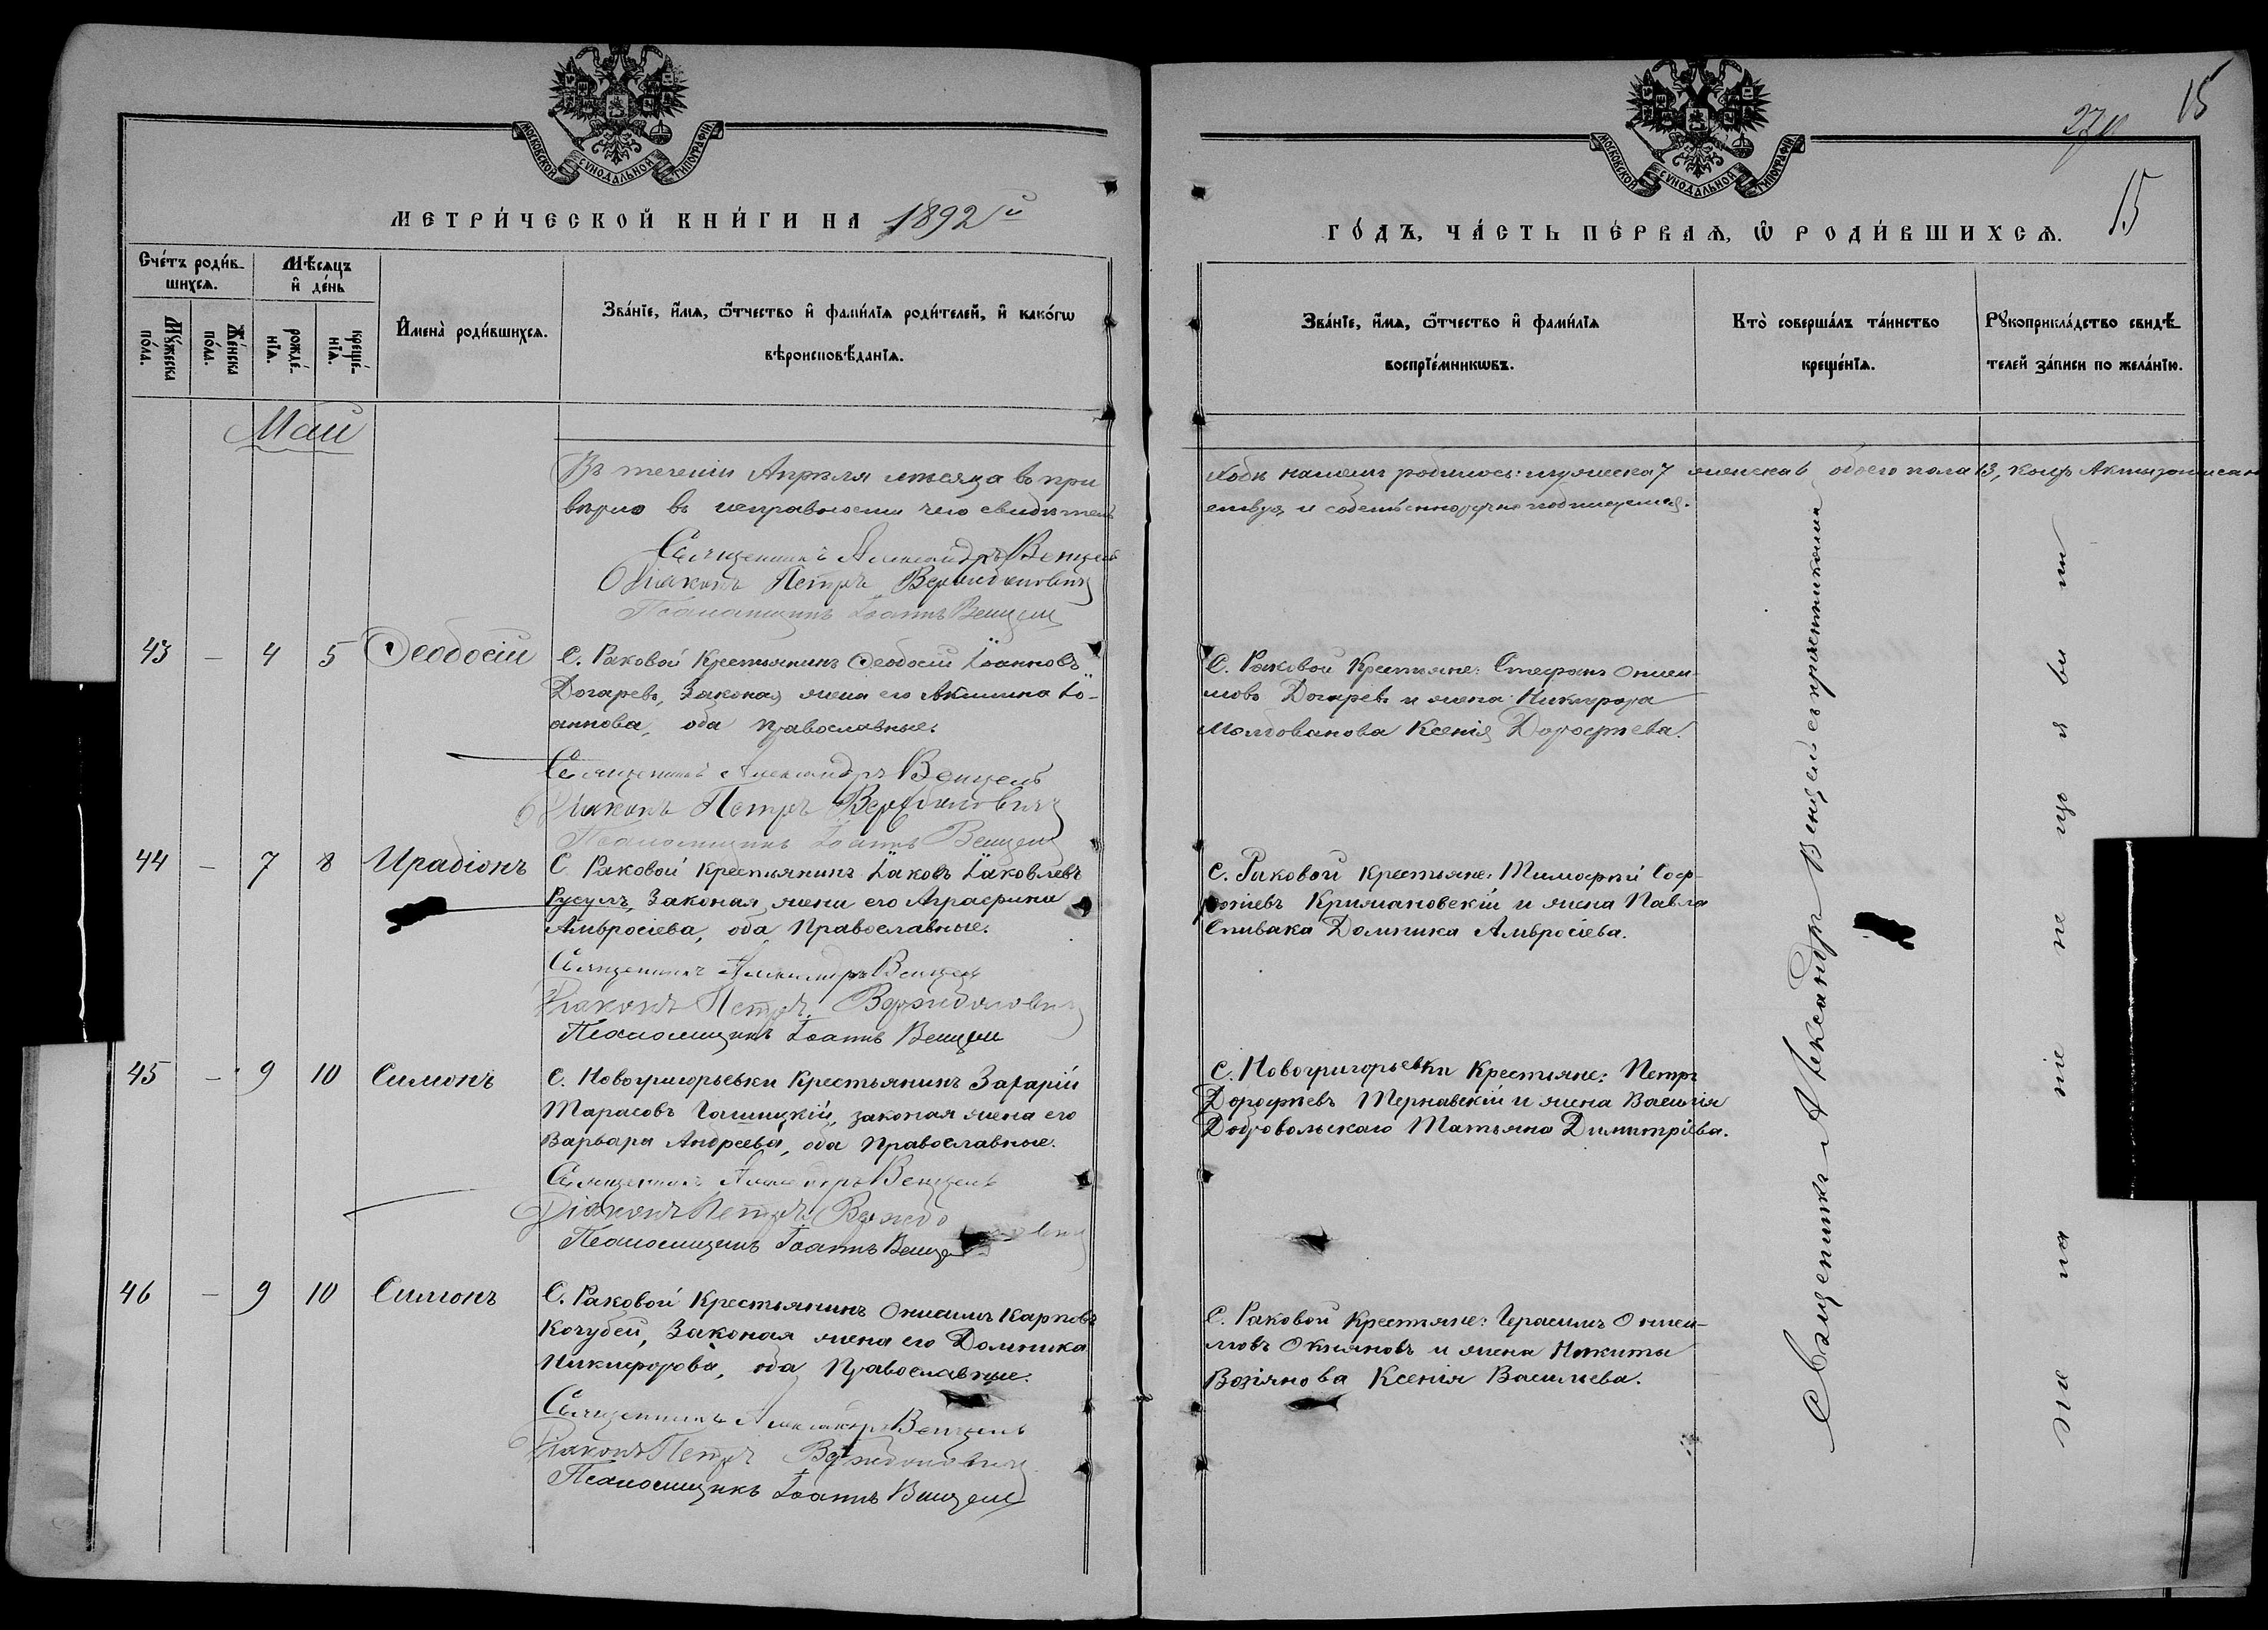 МОСКОВСКОЙ СУНОДАЛЬНОЙ ТИПОГРАФІИ
МЕТРИ́ЧЕСКОЙ КНИ́ГИ НА 1892й
Сче́тъ роди́в-
шихсѧ.
Мѣ́сѧцъ
и҆ де́нь
Мꙋ́жеска
по́ла.
Же́нска
по́ла.
рожде́-
нїѧ.
креще́-
нїѧ.
И҆мена̀ роди́вшихсѧ.
Зва́нїе, и҆́мѧ, ѻ҆́тчество и҆ фами́лїѧ роди́телей, и҆ како́гѡ
вѣроисповѣ́данїѧ.
Май
Въ теченіи Апрѣля мѣсяца въ при
вѣрно въ исправности чего свидѣтель
Священникъ Александръ Венцель
Діаконъ Петръ
Псаломщикъ Іоаннъ Венцель
43 — 4 5 Ѳеодосій
С. Раковой Крестьянинъ Ѳеодосій Іоанновъ
Догаревъ, Законая жена его Акилина Іо-
аннова, оба православные.
Священникъ Александръ Венцель
Діаконъ Петръ
Псаломщикъ Іоаннъ Венцель
44 — 7 8 Ирадіонъ
С. Раковой Крестьянинъ Іаковъ Іаковлевъ
Русулъ, Законая жена его Аграфина
Амвросіева, оба Православные.
Священникъ Александръ Венцель
Діаконъ Петръ
Псаломщикъ Іоаннъ Венцель
45 — 9 10 Симонъ
С. Новогригорьевки Крестьянинъ Захарій
Тарасовъ законая жена его
Варвара Андреева, оба Православные.
Священникъ Александръ Венцель
Діаконъ Петръ
Псаломщикъ Іоаннъ Венцель
46 — 9 10 Симонъ
С. Раковой Крестьянинъ Онисимъ Карповъ
Кочубей, Законая жена его Домника
Никифорова, оба Православные.
Священникъ Александръ Венцель
Діаконъ Петръ
Псаломщикъ Іоаннъ Венцель
МОСКОВСКОЙ СУНОДАЛЬНОЙ ТИПОГРАФІИ
15
15
ГО́ДЪ, ЧА́СТЬ ПЕ́РВАѦ, Ѡ҆ РОДИ́ВШИХСѦ.
Зва́нїе, и҆́мѧ, ѻ҆́тчество и҆ фами́лїѧ
воспрїе́мникѡвъ.
Кто̀ соверша́лъ та́инство
креще́нїѧ.
Рꙋкоприкла́дство свидѣ́-
телей за́писи по жела́нїю.
родилось: мужеска 7 женска 6 обоего пола 13,
С. Раковой Крестьяне: Стефанъ Ониси-
мовъ Догаревъ и жена Никифора
Молдованова Ксенія Дороѳеева.
С. Раковой Крестьяне: Тимоѳей Соф-
роніевъ Крижановскій и жена Павла
Спивака Домника Амвросіева.
С. Новогригорьевки Крестьяне: Петръ
Дороѳеевъ Тернавскій и жена Василія
Добровольскаго Татьяна Димитріева.
С. Раковой Крестьяне: Герасимъ Ониси-
мовъ и жена Никиты
Возіянова Ксенія Василіева.
Священникъ Александръ Венцель съ причетниками
желаніе не изъявили